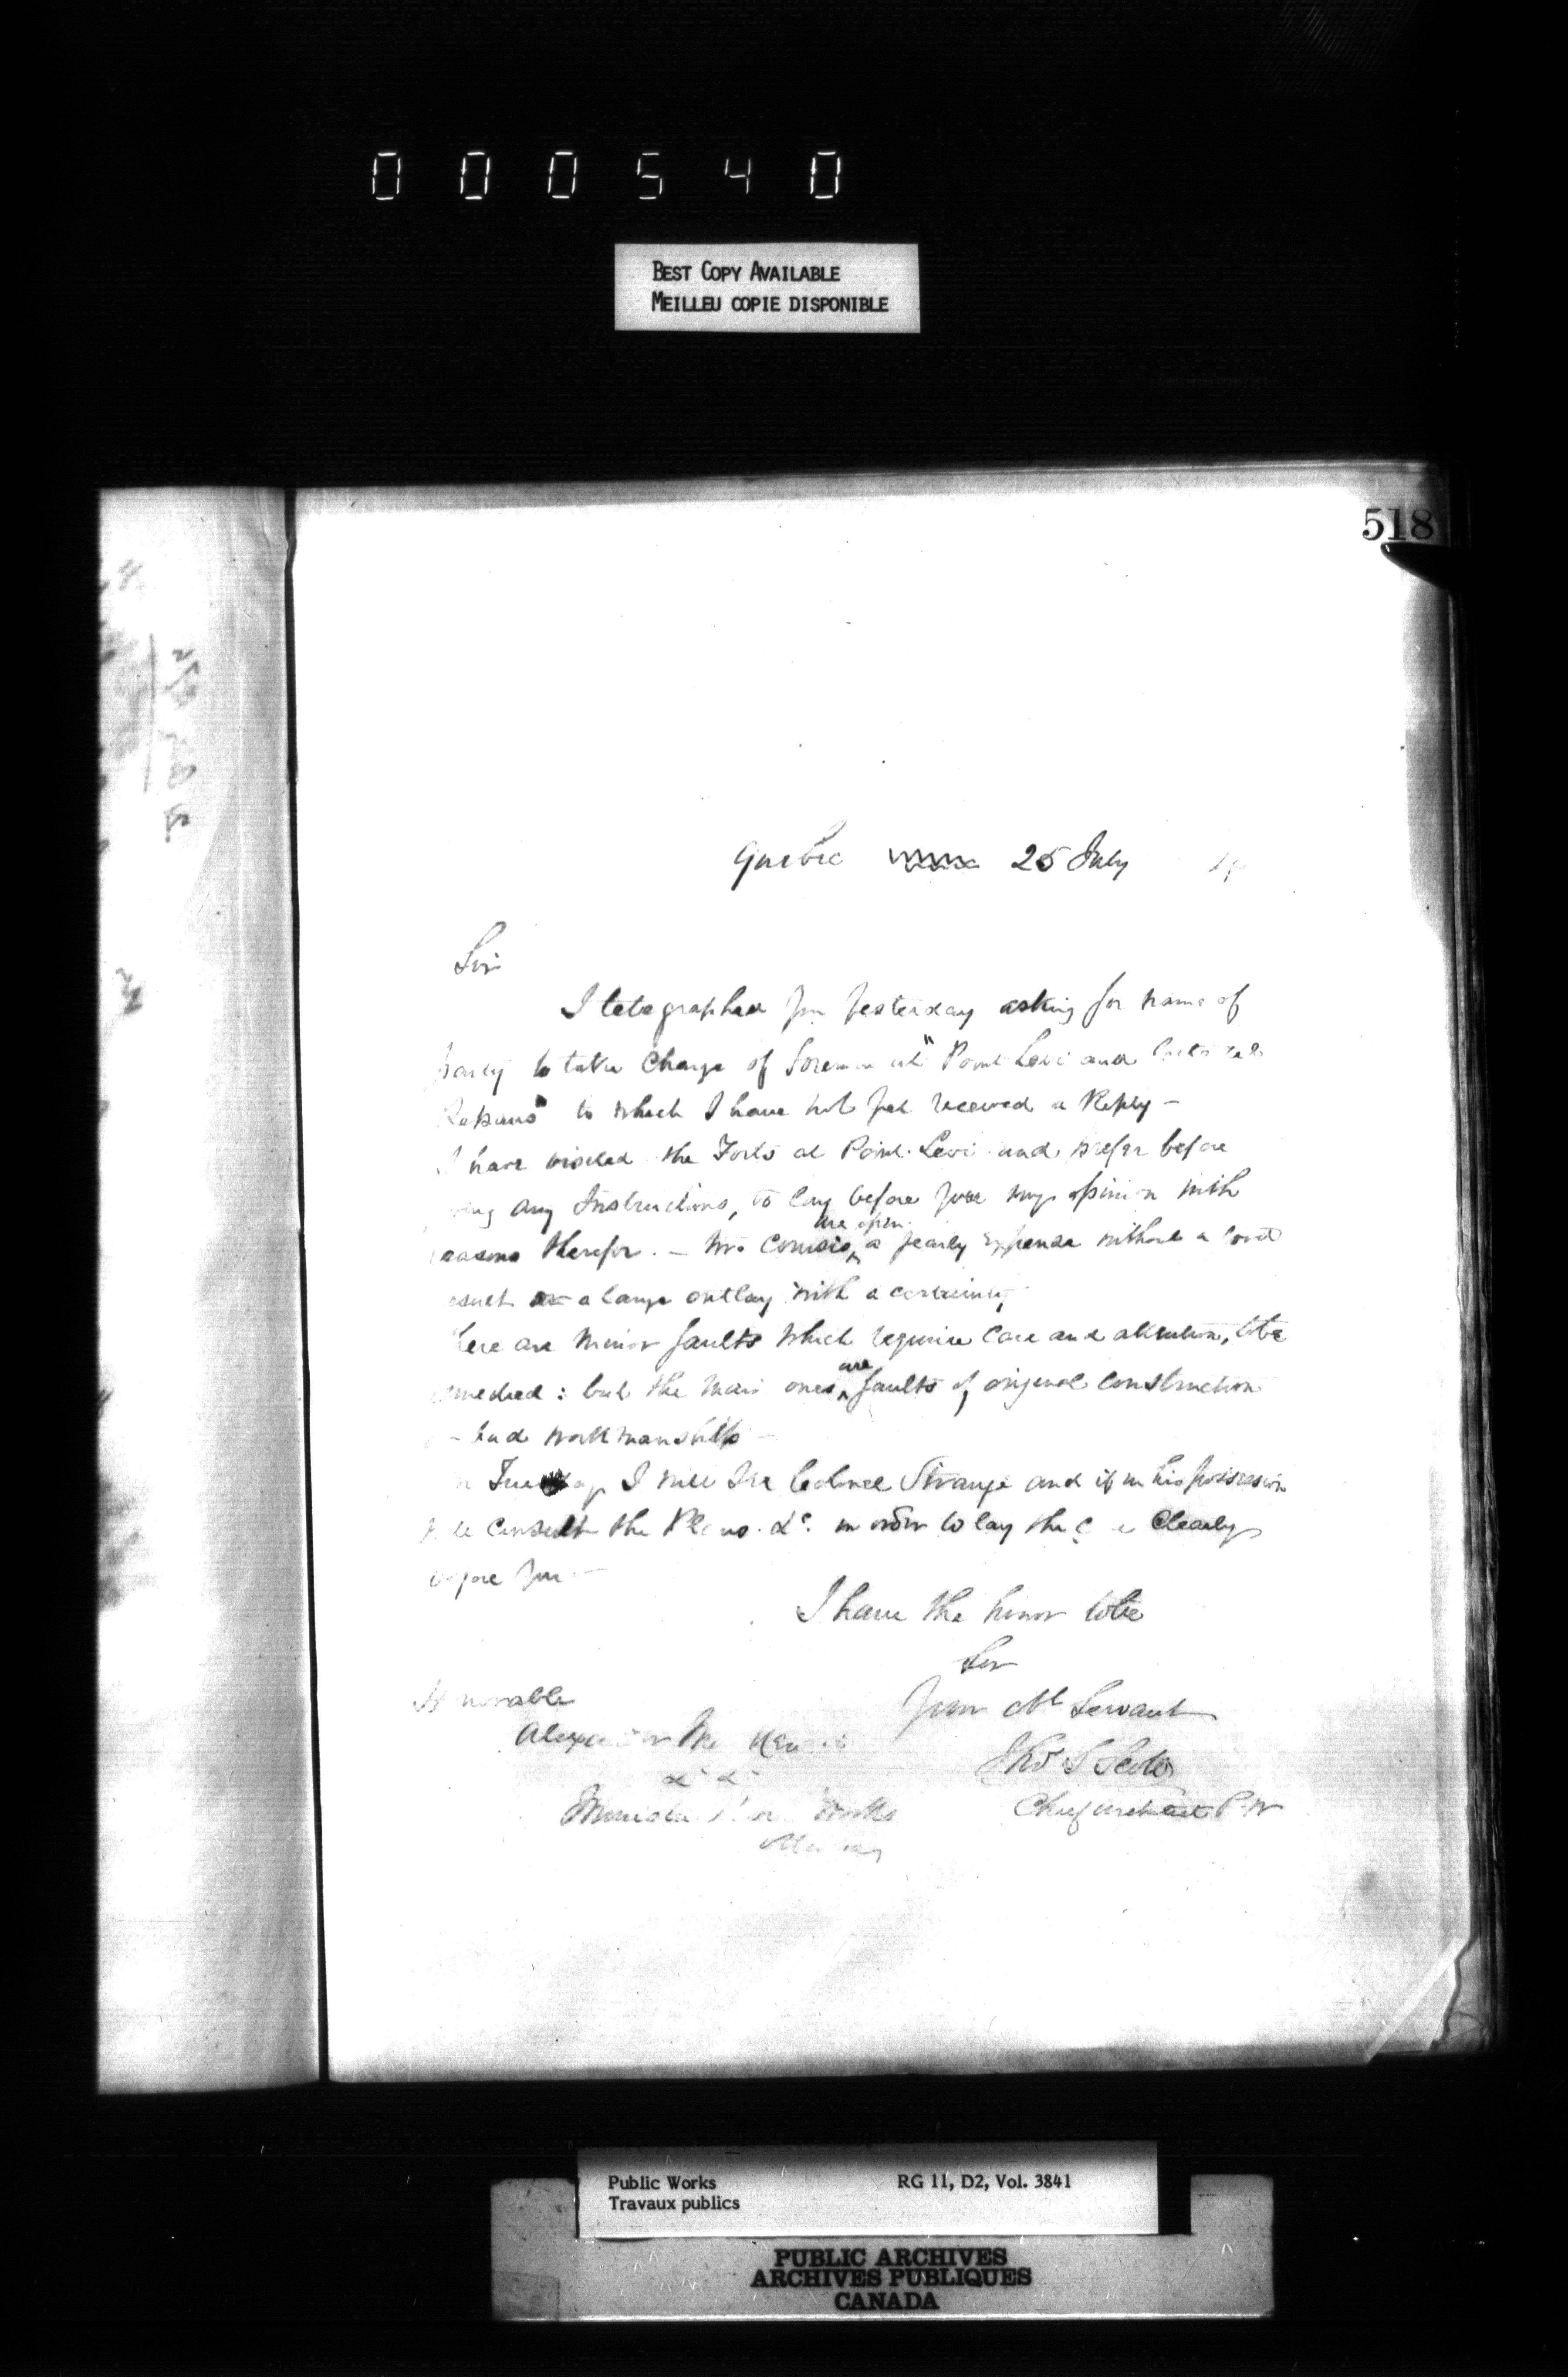 000540
BEST COPY AVAILABLE
MEILLEU COPIE DISPONIBLE
518
Quebec 25 July
Sir
I telegraphed you yesterday asking for name of
party to take Charge of foremen at "Point Levi and
Repairs" to which I have not yet received a Reply –
I have visited the Forts at Point Levi and prefer before
any Instructions, to lay before you my opinion with
reasons therefor. – Two Courses are open. a yearly expense without a good
result or a large outlay with a certainty
here are minor faults which require care and attention, to be
remedied: but the main ones are faults of original construction
– bad workmanship –
n Tuesday I will see Colonel Strange and if in his possession
Consult the Plans &c. in order to lay the c e Clearly
before you –
I have the honor to be
Sir
Your Ob Servant
Thos S Scott
Chief Architect P. W
Honorable
Alexander Mc Kenzie
&c &c
Minister Works
Public Works
Travaux publics
RG 11, D2, Vol. 3841
PUBLIC ARCHIVES
ARCHIVES PUBLIQUES
CANADA